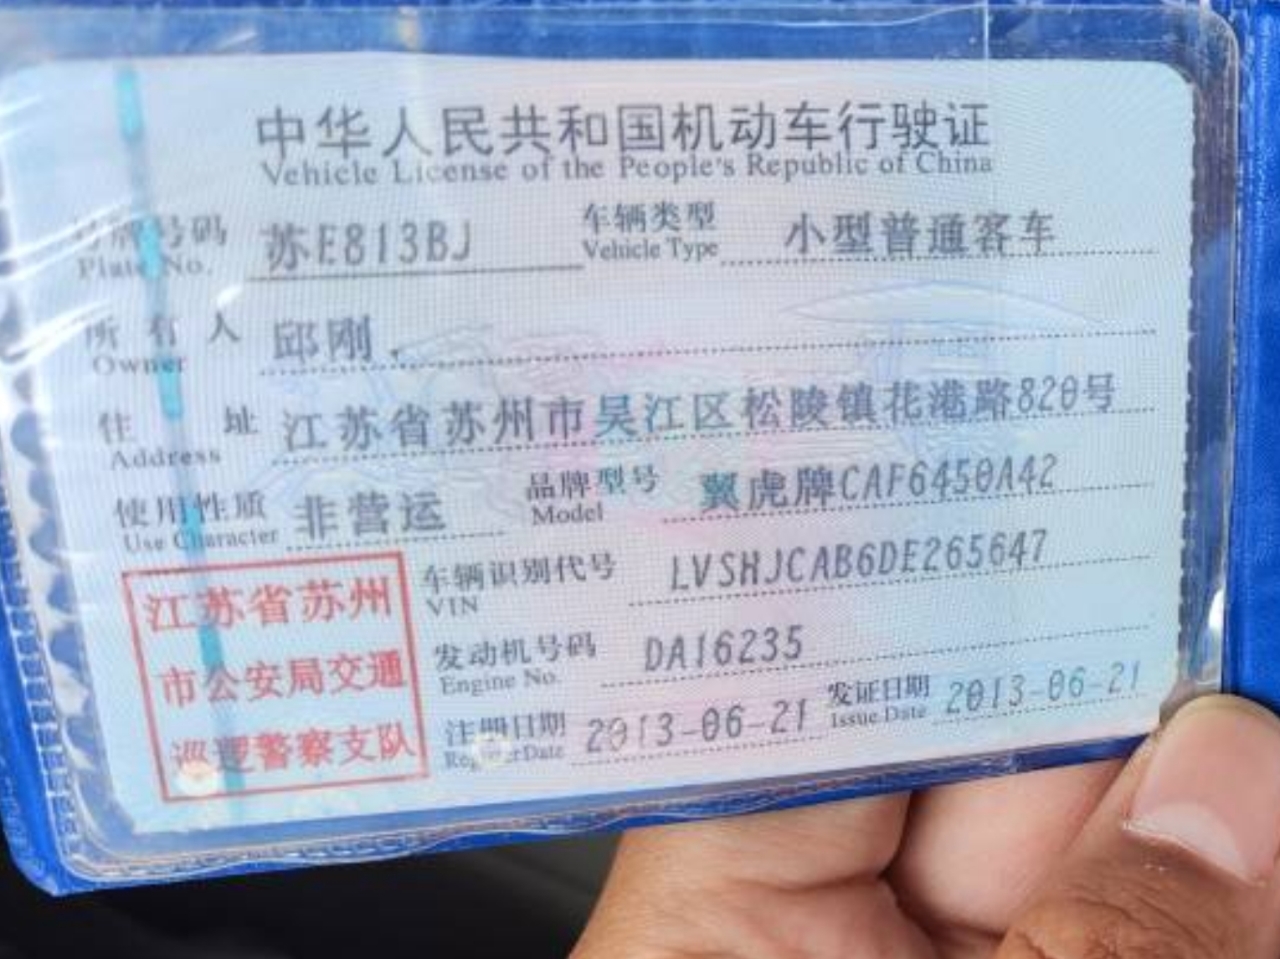 中华人民共和国机动车行驶证
Vehicle License of the People's Republic of China
号牌号码 苏E813BJ 车辆类型 小型普通客车
Plate No. Vehicle Type
所有人 邱刚.
Owner
住址 江苏省苏州市吴江区松陵镇花港路820号
Address
使用性质 非营运 品牌型号 翼虎牌CAF6450A42
Use Character Model
江苏省苏州
市公安局交通
巡逻警察支队
车辆识别代号 LVSHJCAB6DE265647
VIN
发动机号码 DA16235
Engine No.
注册日期 2013-06-21 发证日期 2013-06-21
Register Date Issue Date